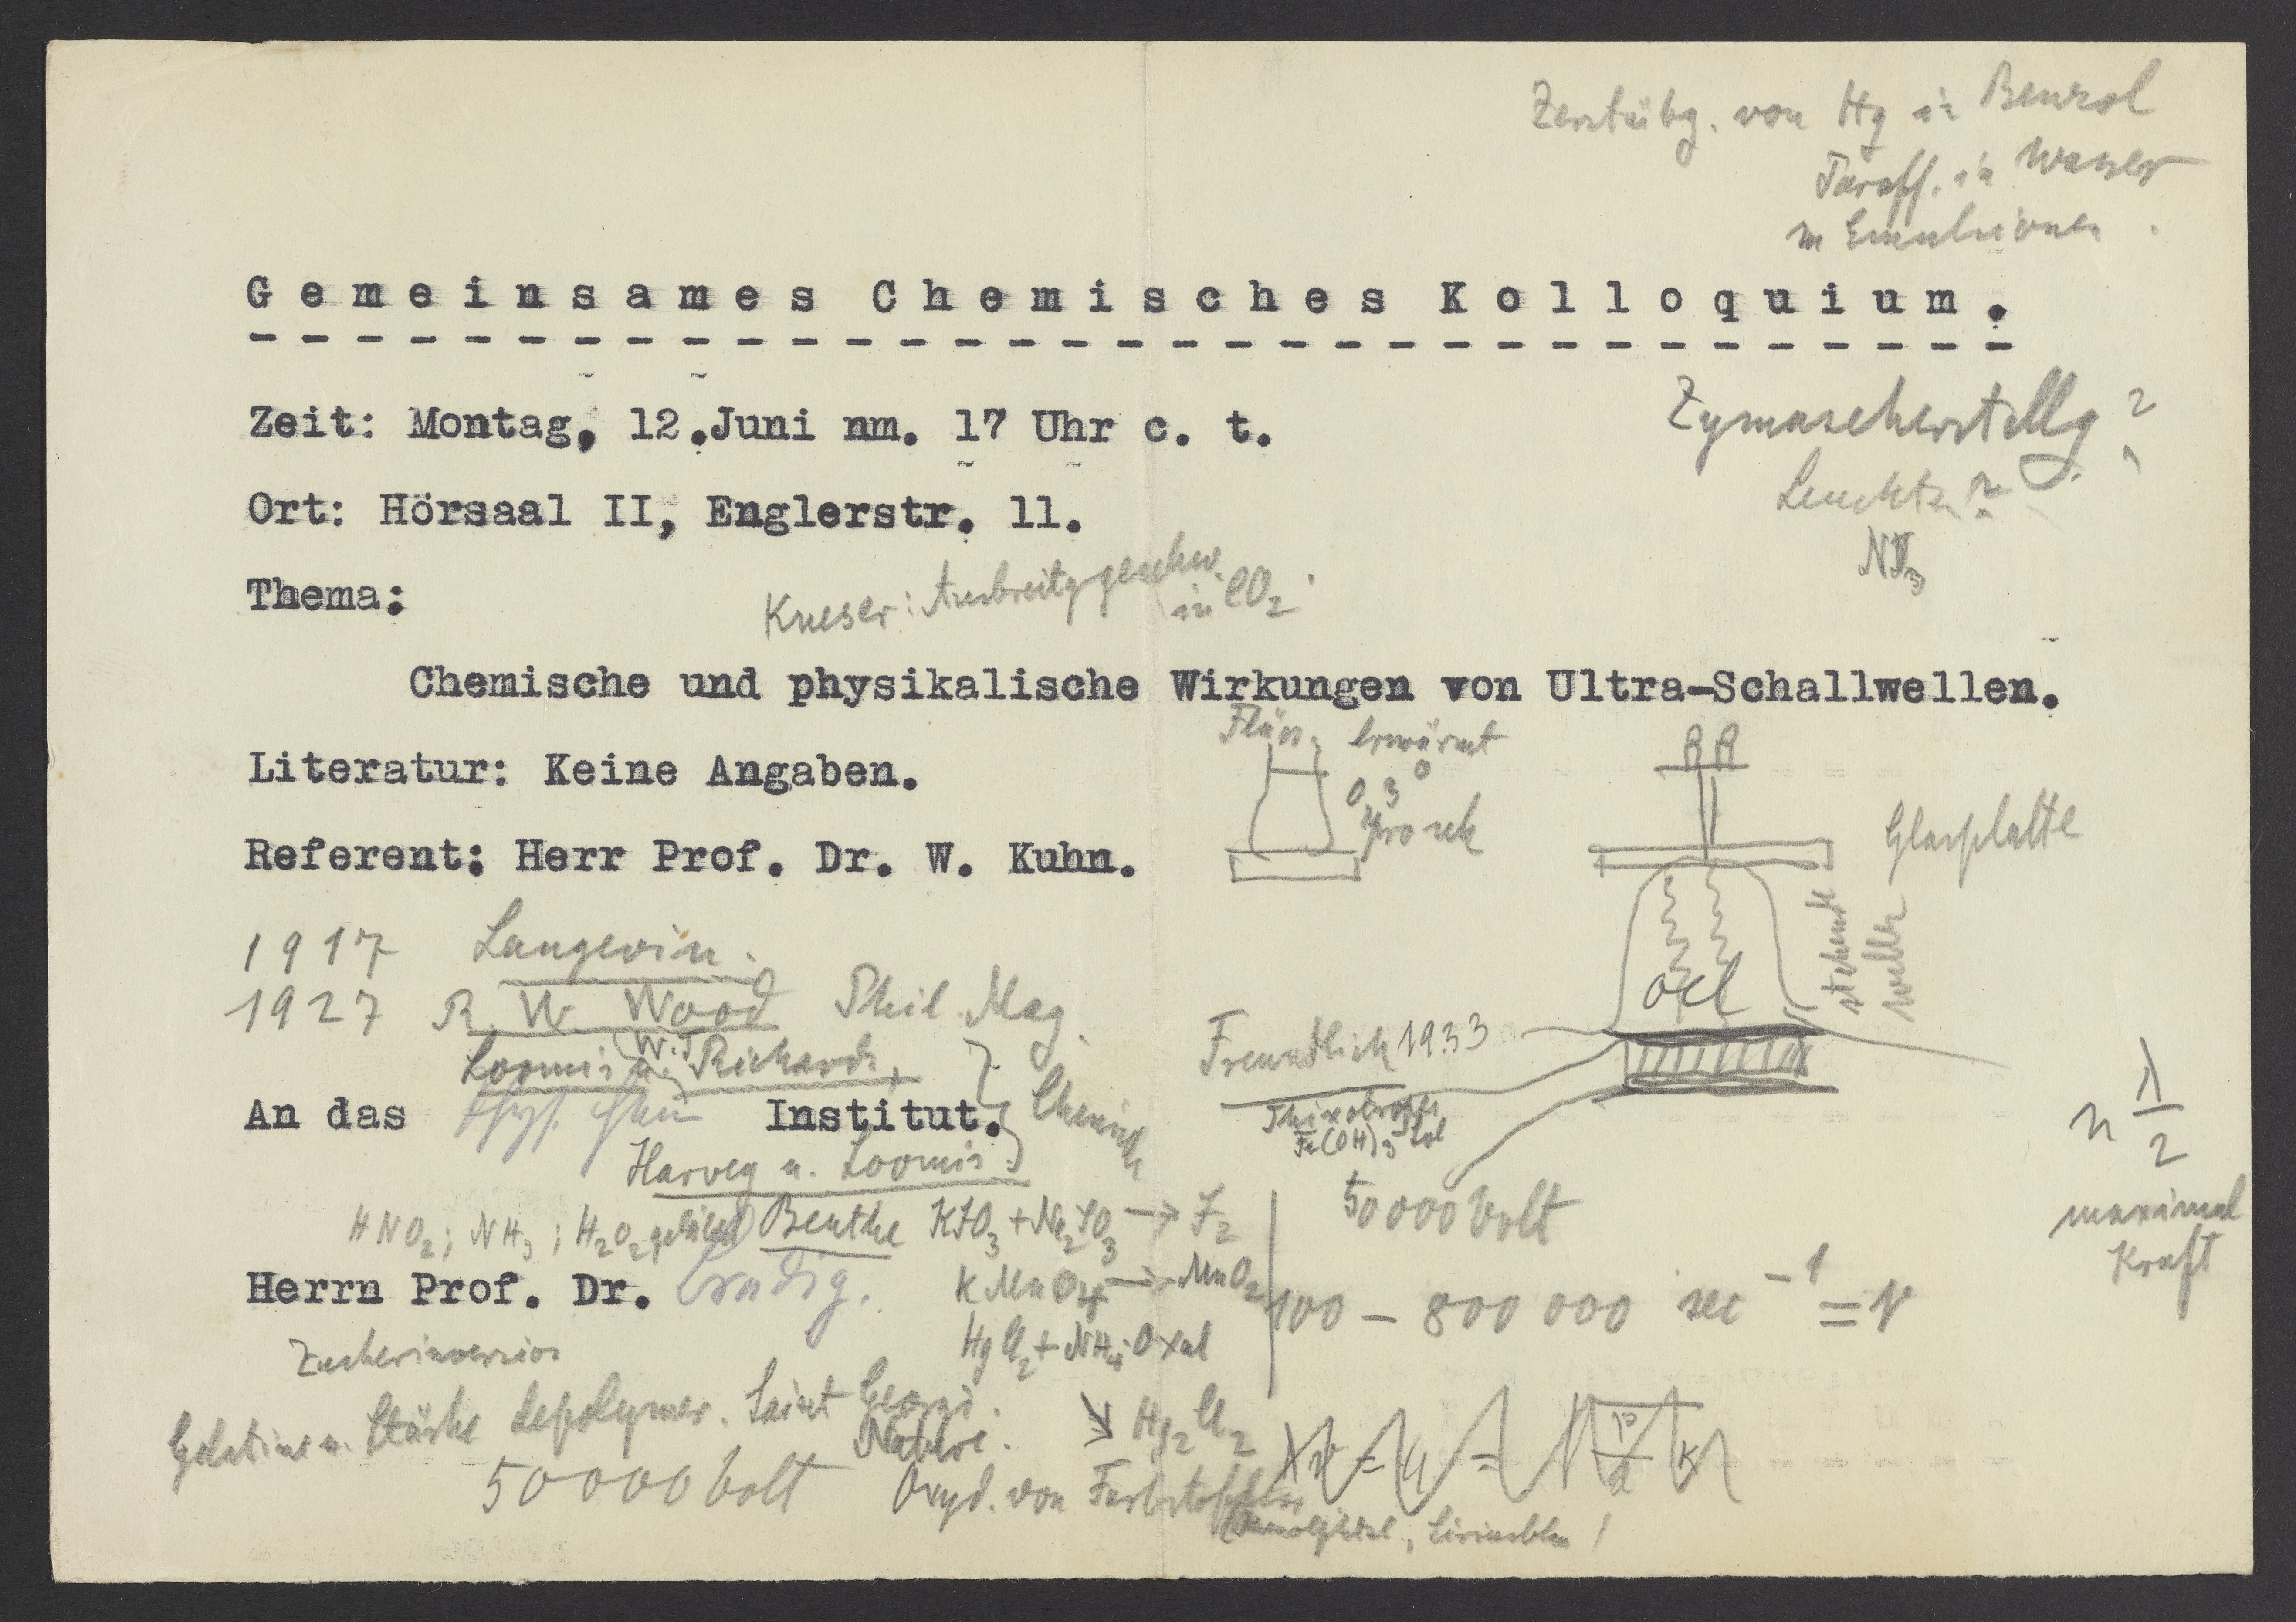 Zerstübg. von Hg in Benzol
Paraff. in Wasser
zu Emulsionen.
Gemeinsames Chemisches Kolloquium.
Zeit: Montag, 12.Juni nm. 17 Uhr c. t.
Zymaseherstellg?
Ort: Hörsaal II, Englerstr. 11.
Leuchten
Thema:
Kneser: Ausbreitggeschw. in CO2
Chemische und physikalische Wirkungen von Ultra-Schallwellen.
Flüss. erwärmt
0,3° pro sek
Literatur: Keine Angaben.
Glasplatte
Referent: Herr Prof. Dr. W. Kuhn.
stehende Welle
Oel
1917 Langevin.
1927 R. W. Wood Phil. Mag.
Loomis u. (W.T.) Richards,
Freundlich 1933
Thixotropes
Fe(OH)3 Sol
An das phys. chem Institut.
Chemisch
Harvey u. Loomis
n λ/2
maximal
Kraft
HNO2; NH3; H2O2 gebildet
Beuthe KJO3 + Na2SO3 → J2
50000 Volt
Herrn Prof. Dr.
KMnO4 → MnO2
100 – 800 000 sec -1 = ν
HgCl2 + NH4-Oxal
Zuckerinversion
↘ Hg2Cl2
Gelatine u. Stärke depolymer. Saint Georgi.
Nature.
50000 Volt
Oxyd. von Farbstoffen